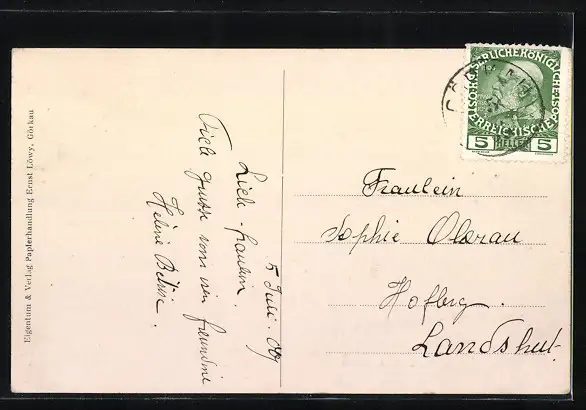 Eigentum & Verlag Papierhandlung Ernst Löwy, Görkau
5 Juli. 09
Lieb. fraulein.
Viele grusse von
freundine
Helene
KAISERLICHE KÖNIGLICHE
ÖSTERREICHISCHE POST
5 HELLER 5
Fraulein
Sophie Oberau
Hofberg.
Landshut.